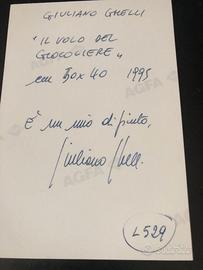 GIULIANO GHELLI
"IL VOLO DEL
GIOCOLIERE"
cm 50x40 1995
È un mio dipinto,
Giuliano Ghelli
L529
AGFA